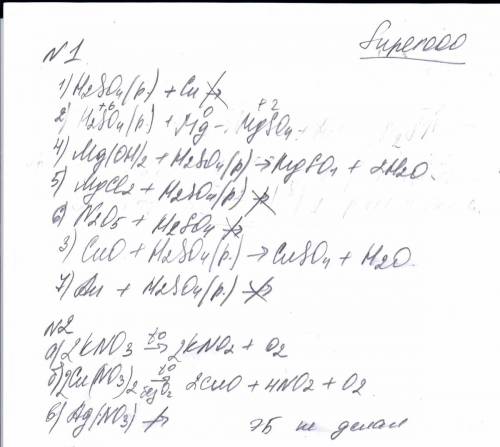 Superooo
N1
1) H2SO4(р.) + Cu ↛
2) H2SO4(р) + Mg - MgSO4
+6 0 +2
4) Mg(OH)2 + H2SO4(р) → MgSO4 + 2H2O
5) MgCl2 + H2SO4(р) ↛
6) N2O5 + H2SO4 ↛
3) CuO + H2SO4(р.) → CuSO4 + H2O
7) Au + H2SO4(р.) ↛
N2
а) 2KNO3 →t0 2KNO2 + O2
б) 2Cu(NO3)2 →t0 2CuO + 4NO2 + O2
в) Ag(NO3) ↛ ЭБ не делал